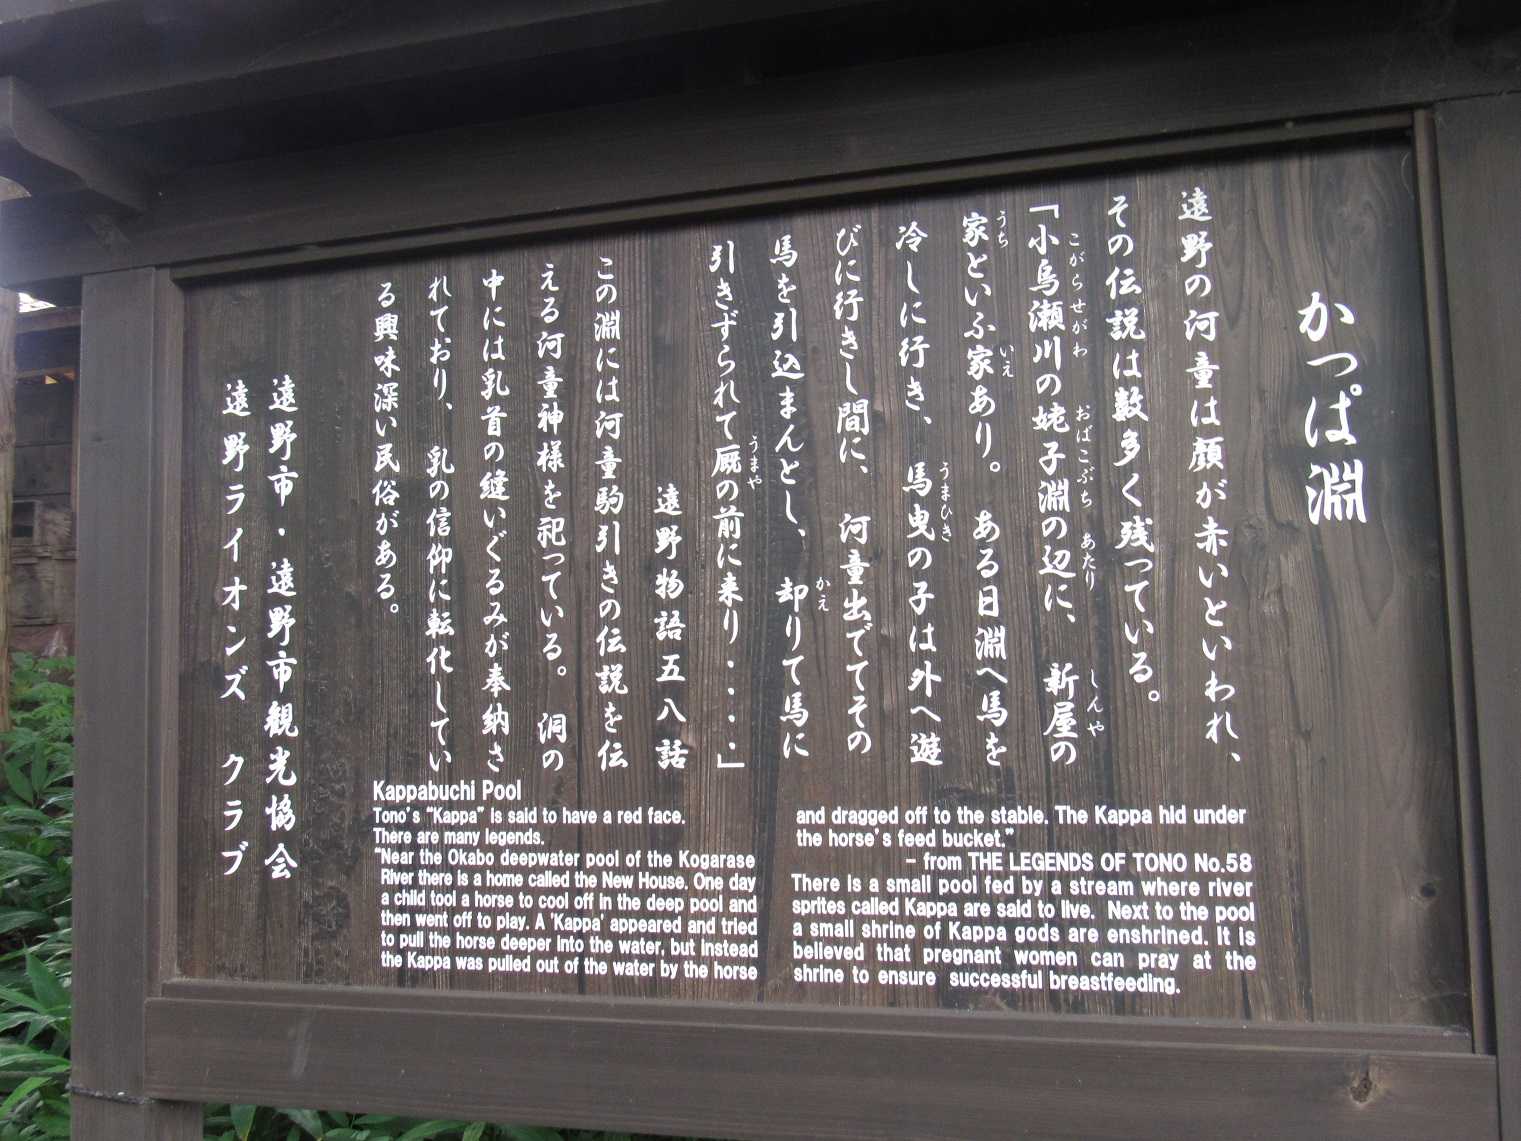 かっぱ淵
遠野の河童は顔が赤いといわれ、
その伝説は数多く残っている。
「小烏瀬川の姥子淵の辺に、新屋の
こがらせがわ おばこぶち あたり しんや
家といふ家あり。ある日淵へ馬を
うち いえ
冷しに行き、馬曳の子は外へ遊
うまひき
びに行きし間に、河童出でてその
馬を引込まんとし、却りて馬に
かえ
引きずられて厩の前に来り・・・・」
うまや
遠野物語五八話
この淵には河童駒引きの伝説を伝
える河童神様を祀っている。洞の
中には乳首の縫いぐるみが奉納さ
れており、乳の信仰に転化してい
る興味深い民俗がある。
遠野市・遠野市観光協会
遠野ライオンズ クラブ
Kappabuchi Pool
Tono's "Kappa" is said to have a red face.
There are many legends.
"Near the Okabo deepwater pool of the Kogarase
River there is a home called the New House. One day
a child tool a horse to cool off in the deep pool and
then went off to play. A 'Kappa' appeared and tried
to pull the horse deeper into the water, but instead
the Kappa was pulled out of the water by the horse
and dragged off to the stable. The Kappa hid under
the horse's feed bucket."
– from THE LEGENDS OF TONO No.58
There is a small pool fed by a stream where river
sprites called Kappa are said to live. Next to the pool
a small shrine of Kappa gods are enshrined. It is
believed that pregnant women can pray at the
shrine to ensure successful breastfeeding.